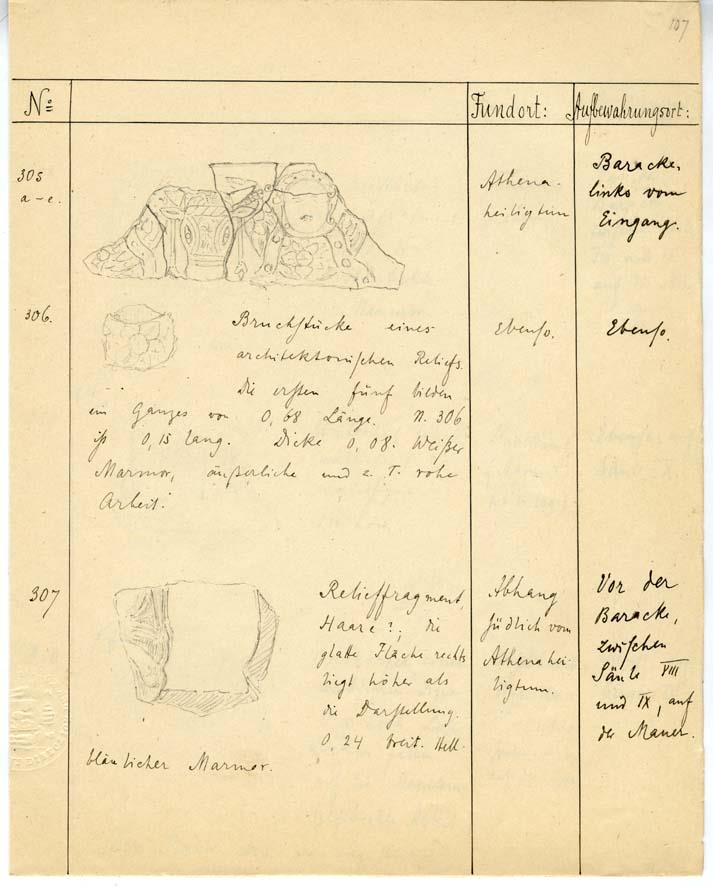 107
No Fundort: Aufbewahrungsort:
305
a-e.
Athena-
heiligtum
Baracke,
links vom
Eingang.
306.
Bruchstücke eines
architektonischen Reliefs.
Die ersten fünf bilden
ein Ganzes von 0,68 Länge. N. 306
ist 0,15 lang. Dicke 0,08. Weißer
Marmor, äußerliche und z. T. rohe
Arbeit.
Ebenso.
Ebenso.
307
Relieffragment,
Haare?; die
glatte Fläche rechts
liegt höher als
die Darstellung.
0,24 breit. Hell-
bläulicher Marmor.
Abhang
südlich vom
Athenahei-
ligtum.
Vor der
Baracke,
zwischen
Säule VIII
und IX, auf
der Mauer.